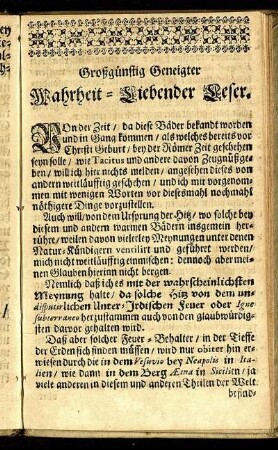 Großgünstig Geneigter
Wahrheit-Liebender Leser.
VOn der Zeit / da diese Bäder bekandt worden
und in Gang kommen / als welches bereits vor
Christi Geburt / bey der Römer Zeit geschehen
seyn solle / wie Tacitus und andere davon Zeugnüß ge-
ben / will ich hie nichts melden / angesehen dieses von
andern weitläufftig geschehen / und ich mir vorgenom-
men mit wenigen Worten vor dießesmahl nochmahl
nöthigere Dinge vorzustellen.
Auch will / von dem Ursprung der Hitz / wo solche bey
diesem und andern warmen Bädern insgemein her-
rühre / weilen davon vielerley Meynungen unter denen
Natur-Kündigern ventilirt und geführet werden /
mich nicht weitläufftig einmischen: dennoch aber mei-
nen Glauben hierinn nicht bergen.
Nemlich daß ichs mit der wahrscheinlichsten
Meynung halte / da solche Hitz von dem un-
disputirlichen Unter-Irdischen Feuer oder Igne
subterraneo herzustammen auch von den glaubwürdig-
sten davor gehalten wird.
Daß aber solcher Feuer-Behalter / in der Tieffe
der Erden sich finden müssen / wird nur obiter hin er-
wiesen durch die in dem Vesuvio bey Neapolis in Ita-
lien / wie dann in dem Berg Ætna in Sicilien / ja
viele anderen in diesem und anderen Theilen der Welt
befind-